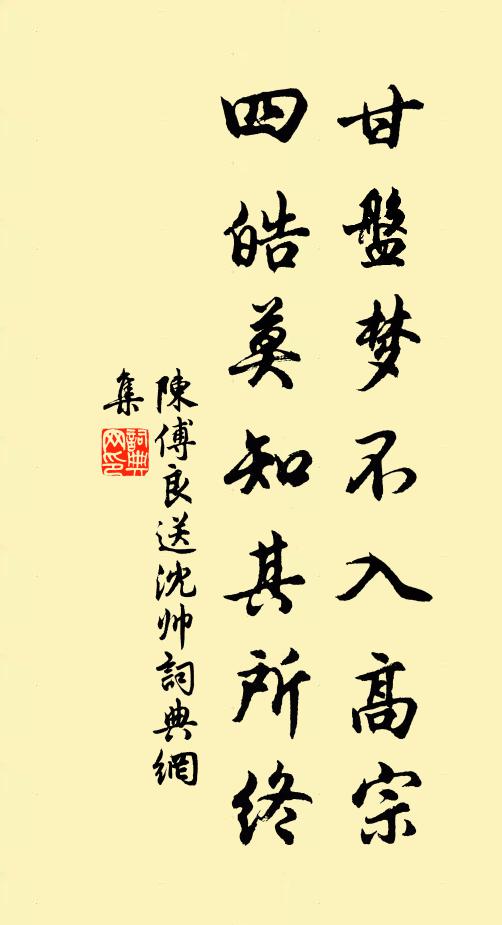 甘盤梦不入高宗
四皓莫知其所终
陳傅良送沈帅詞典網
集
詞典网印